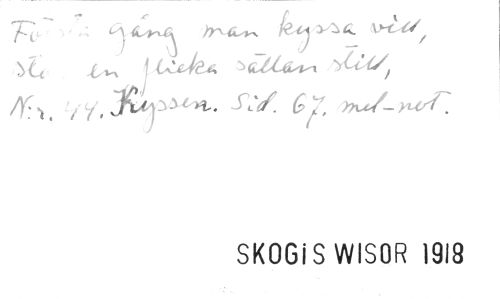 Första gång man kyssa vill,
står en flicka sällan still,
N:r. 44. Kyssen. Sid. 67. mel-not.
SKOGIS WISOR 1918